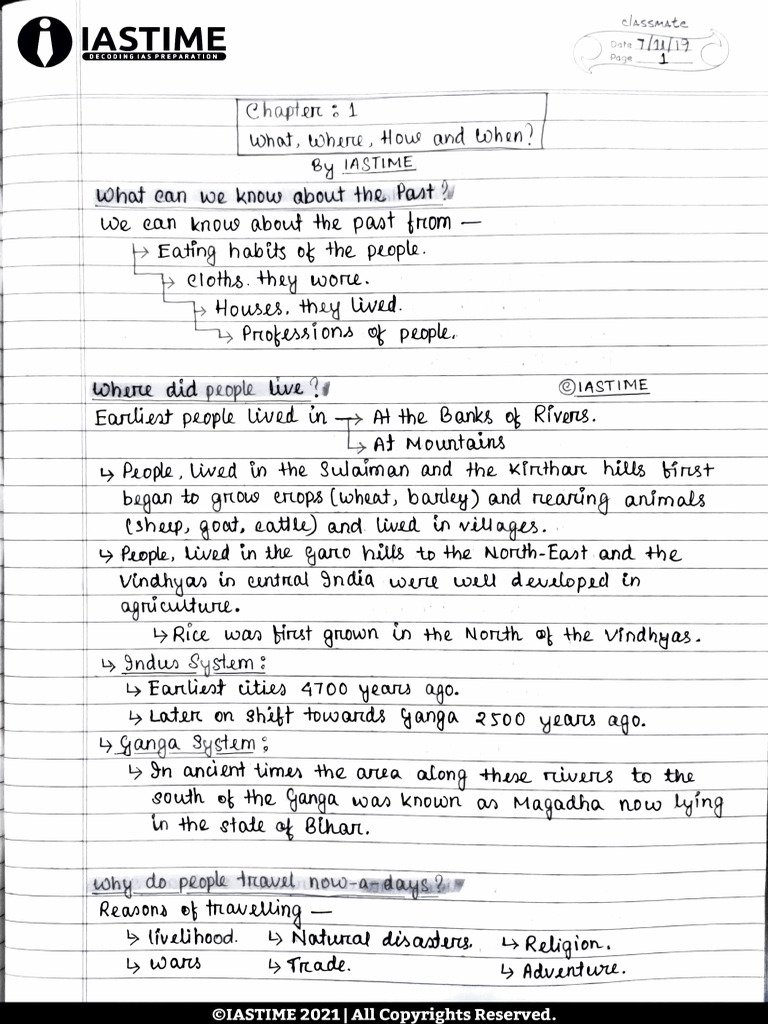 IASTIME
DECODING IAS PREPARATION
classmate
Date 7/11/19
Page 1
Chapter : 1
What, Where, How and When?
By IASTIME
What can we know about the Past?
We can know about the past from —
↳ Eating habits of the people.
↳ Cloths. they wore.
↳ Houses. they lived.
↳ Professions of people.
Where did people live?
©IASTIME
Earliest people lived in → At the Banks of Rivers.
↳ At Mountains
↳ People, lived in the Sulaiman and the Kirthar hills first
began to grow crops (wheat, barley) and rearing animals
(sheep, goat, cattle) and lived in villages.
↳ People, lived in the Garo hills to the North-East and the
Vindhyas in central India were well developed in
agriculture.
↳ Rice was first grown in the North of the Vindhyas.
↳ Indus System :
↳ Earliest cities 4700 years ago.
↳ Later on shift towards Ganga 2500 years ago.
↳ Ganga System :
↳ In ancient times the area along these rivers to the
south of the Ganga was known as Magadha now lying
in the state of Bihar.
Why do people travel now-a-days?
Reasons of travelling —
↳ livelihood. ↳ Natural disasters. ↳ Religion.
↳ Wars ↳ Trade. ↳ Adventure.
©IASTIME 2021 | All Copyrights Reserved.